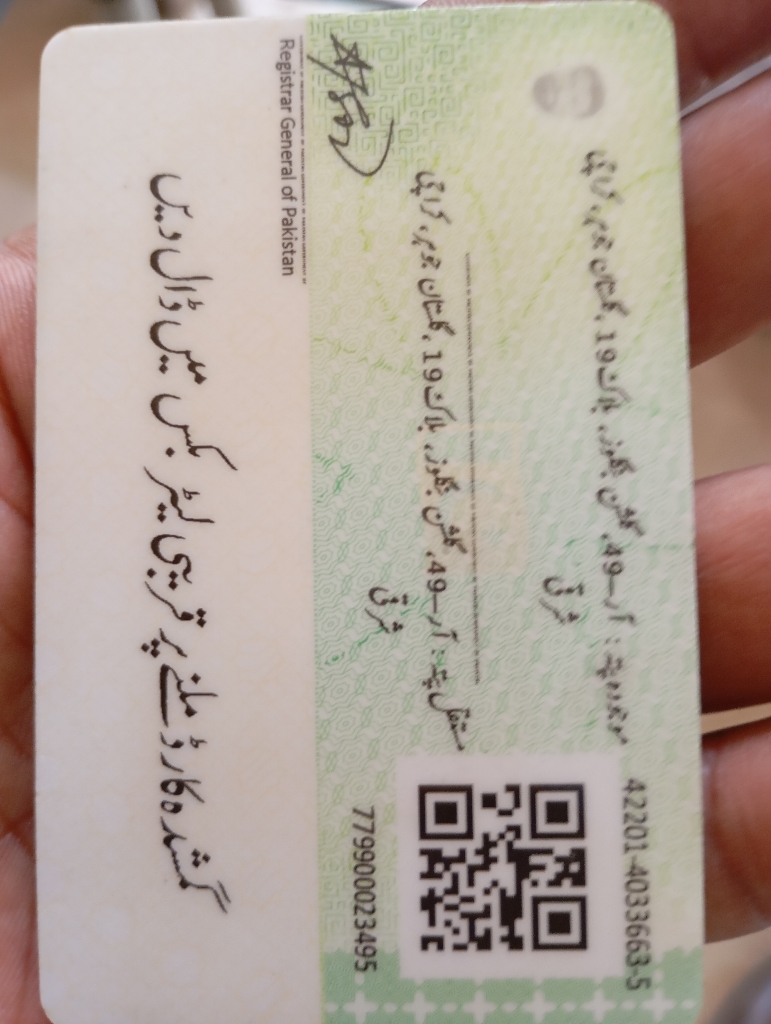 42201-4033663-5
موجودہ پتہ : آر-49، گلشن بنگلوز، بلاک 19، گلستان جوہر، کراچی
شرقی
مستقل پتہ : آر-49، گلشن بنگلوز، بلاک 19، گلستان جوہر، کراچی
شرقی
779900023495
Registrar General of Pakistan
گمشدہ کارڈ ملنے پر قریبی لیٹر بکس میں ڈال دیں